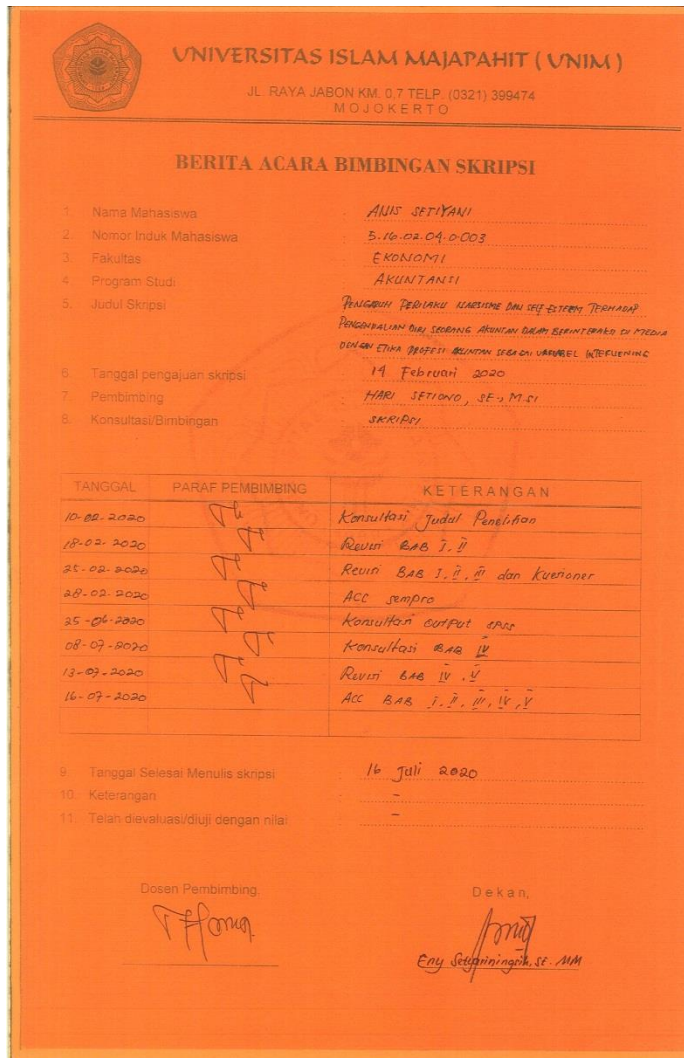 UNIVERSITAS ISLAM MAJAPAHIT ( UNIM )
JL. RAYA JABON KM. 0,7 TELP. (0321) 399474
MOJOKERTO
BERITA ACARA BIMBINGAN SKRIPSI
1. Nama Mahasiswa : ANIS SETIYANI
2. Nomor Induk Mahasiswa : 5.16.02.04.0.003
3. Fakultas : EKONOMI
4. Program Studi : AKUNTANSI
5. Judul Skripsi : PENGARUH PERILAKU NARSISME DAN SELF ESTEEM TERHADAP
PENGENDALIAN DIRI SEORANG AKUNTAN DALAM BERINTERAKSI DI MEDIA
DENGAN ETIKA PROFESI AKUNTAN SEBAGAI VARIABEL INTERVENING
6. Tanggal pengajuan skripsi : 14 Februari 2020
7. Pembimbing : HARI SETIONO, SE., M.SI
8. Konsultasi/Bimbingan : SKRIPSI
TANGGAL PARAF PEMBIMBING KETERANGAN
10-02-2020 Konsultasi Judul Penelitian
18-02-2020 Revisi BAB I, II
25-02-2020 Revisi BAB I, II, III dan Kuesioner
28-02-2020 ACC sempro
25-06-2020 Konsultasi output SPSS
08-07-2020 Konsultasi BAB IV
13-07-2020 Revisi BAB IV, V
16-07-2020 ACC BAB I, II, III, IV, V
9. Tanggal Selesai Menulis skripsi : 16 Juli 2020
10. Keterangan : -
11. Telah dievaluasi/diuji dengan nilai : -
Dosen Pembimbing, Dekan,
Eny Setyariningsih, SE. MM